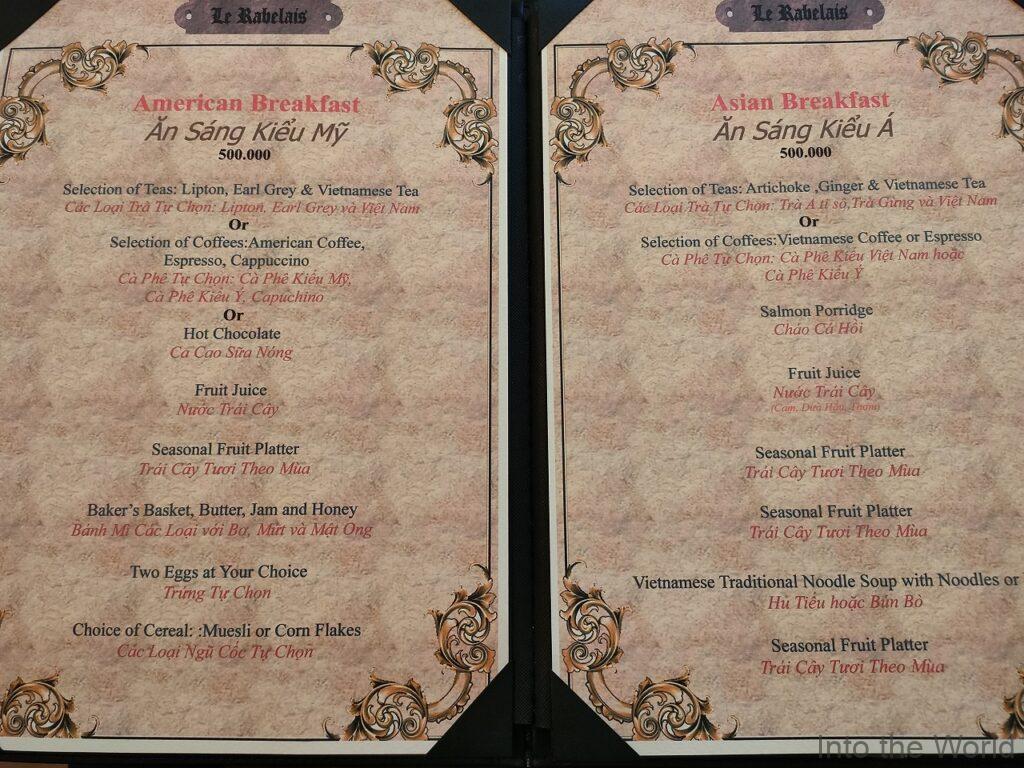 Le Rabelais
American Breakfast
Ăn Sáng Kiểu Mỹ
500.000
Selection of Teas: Lipton, Earl Grey & Vietnamese Tea
Các Loại Trà Tự Chọn: Lipton, Earl Grey và Việt Nam
Or
Selection of Coffees:American Coffee,
Espresso, Cappuccino
Cà Phê Tự Chọn: Cà Phê Kiểu Mỹ,
Cà Phê Kiểu Ý, Capuchino
Or
Hot Chocolate
Ca Cao Sữa Nóng
Fruit Juice
Nước Trái Cây
Seasonal Fruit Platter
Trái Cây Tươi Theo Mùa
Baker's Basket, Butter, Jam and Honey
Bánh Mì Các Loại với Bơ, Mứt và Mật Ong
Two Eggs at Your Choice
Trứng Tự Chọn
Choice of Cereal: :Muesli or Corn Flakes
Các Loại Ngũ Cốc Tự Chọn
Le Rabelais
Asian Breakfast
Ăn Sáng Kiểu Á
500.000
Selection of Teas: Artichoke ,Ginger & Vietnamese Tea
Các Loại Trà Tự Chọn: Trà A ti sô,Trà Gừng và Việt Nam
Or
Selection of Coffees:Vietnamese Coffee or Espresso
Cà Phê Tự Chọn: Cà Phê Kiểu Việt Nam hoặc
Cà Phê Kiểu Ý
Salmon Porridge
Cháo Cá Hồi
Fruit Juice
Nước Trái Cây
(Cam, Dưa Hấu, Thơm)
Seasonal Fruit Platter
Trái Cây Tươi Theo Mùa
Seasonal Fruit Platter
Trái Cây Tươi Theo Mùa
Vietnamese Traditional Noodle Soup with Noodles or
Hủ Tiếu hoặc Bún Bò
Seasonal Fruit Platter
Trái Cây Tươi Theo Mùa
Into the World